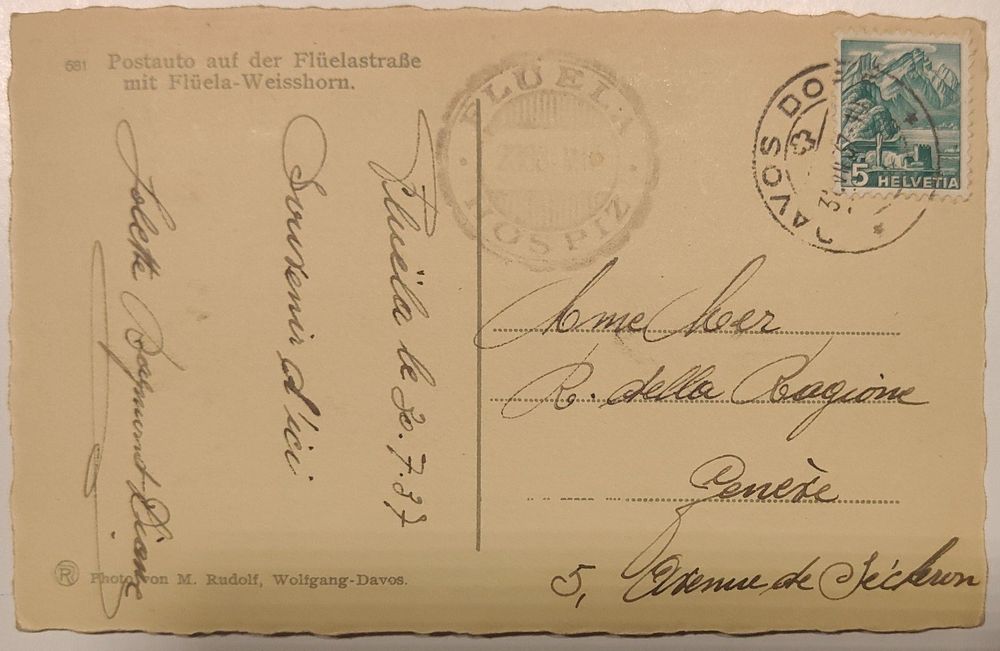 681 Postauto auf der Flüelastraße
mit Flüela-Weisshorn.
FLÜELA
HOSPIZ
DAVOS DO
5 HELVETIA
Flüela le 30.7.37
Souvenir d'ici
Mme Mer
R. della Ragione
Genève
5, Avenue de Sécheron
R Photo von M. Rudolf, Wolfgang-Davos.